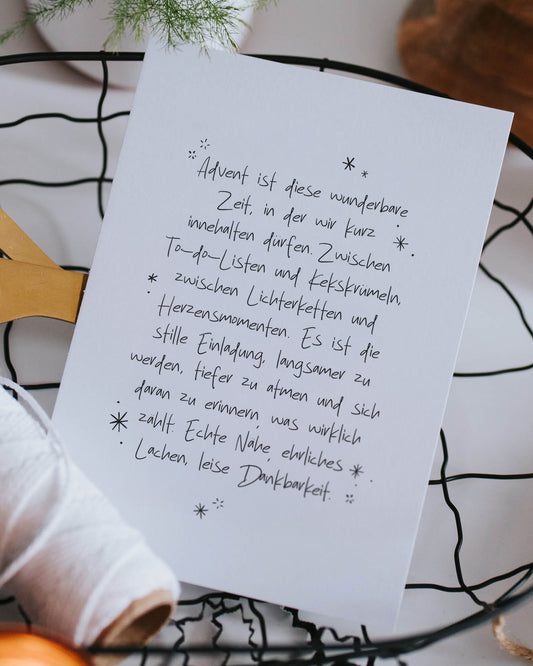 Advent ist diese wunderbare
Zeit, in der wir kurz
innehalten dürfen. Zwischen
To-do-Listen und Kekskrümeln,
zwischen Lichterketten und
Herzensmomenten. Es ist die
stille Einladung, langsamer zu
werden, tiefer zu atmen und sich
daran zu erinnern, was wirklich
zählt. Echte Nähe, ehrliches
Lachen, leise Dankbarkeit.